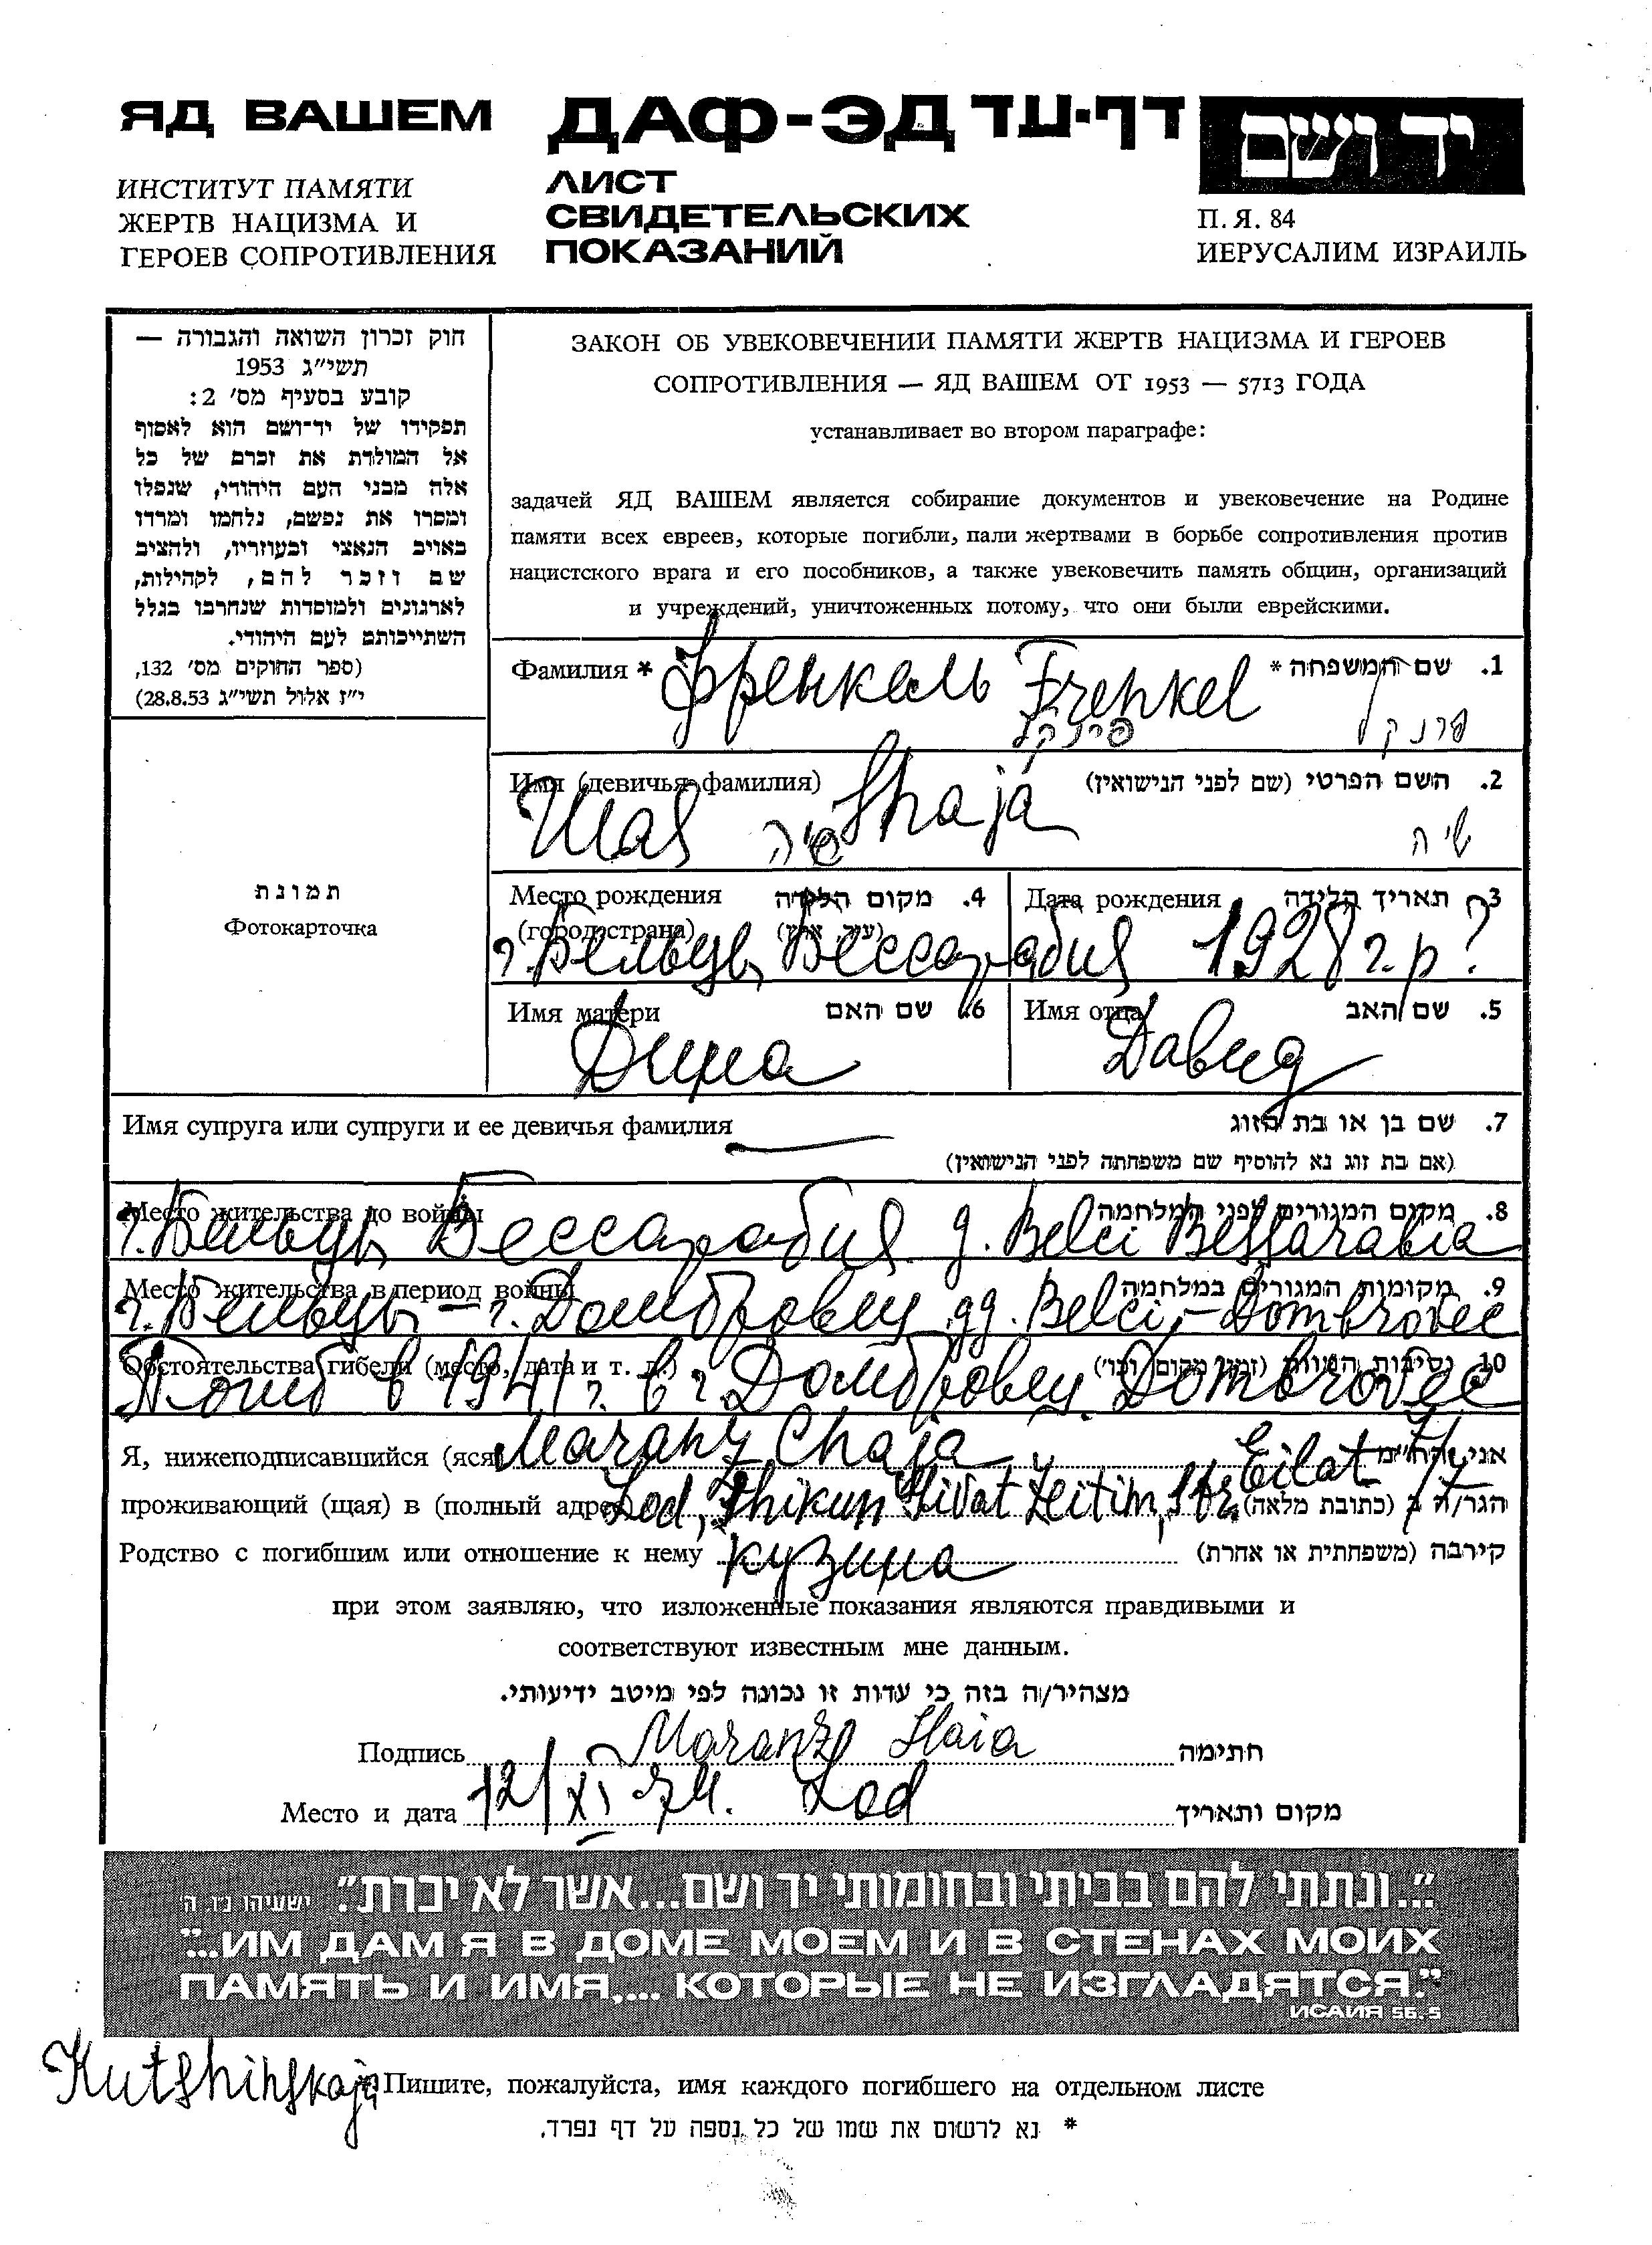 ЯД ВАШЕМ
ИНСТИТУТ ПАМЯТИ
ЖЕРТВ НАЦИЗМА И
ГЕРОЕВ СОПРОТИВЛЕНИЯ
ДАФ-ЭД דף-עד
ЛИСТ
СВИДЕТЕЛЬСКИХ
ПОКАЗАНИЙ
יד ושם
П. Я. 84
ИЕРУСАЛИМ ИЗРАИЛЬ
חוק זכרון השואה והגבורה —
תשי״ג 1953
קובע בסעיף מס׳ 2:
תפקידו של יד־ושם הוא לאסוף
אל המולדת את זכרם של כל
אלה מבני העם היהודי, שנפלו
ומסרו את נפשם, נלחמו ומרדו
באויב הנאצי ובעוזריו, ולהציב
שם וזכר להם, לקהילות,
לארגונים ולמוסדות שנחרבו בגלל
השתייכותם לעם היהודי.
(ספר החוקים מס׳ 132,
י״ז אלול תשי״ג 28.8.53)
תמונת
Фотокарточка
ЗАКОН ОБ УВЕКОВЕЧЕНИИ ПАМЯТИ ЖЕРТВ НАЦИЗМА И ГЕРОЕВ
СОПРОТИВЛЕНИЯ — ЯД ВАШЕМ ОТ 1953 — 5713 ГОДА
устанавливает во втором параграфе:
задачей ЯД ВАШЕМ является собирание документов и увековечение на Родине
памяти всех евреев, которые погибли, пали жертвами в борьбе сопротивления против
нацистского врага и его пособников, а также увековечить память общин, организаций
и учреждений, уничтоженных потому, что они были еврейскими.
Фамилия * Френкель Frenkel 1. שם המשפחה *
פרנקל פרנקל
Имя (девичья фамилия) 2. השם הפרטי (שם לפני הנישואין)
Шая שיה Shaja שיה
Место рождения 4. מקום הלידה
(город, страна) (עיר, ארץ)
г. Бельцы, Бессарабия
Дата рождения 3. תאריך הלידה
1928 г. р?
Имя матери 6. שם האם
Дина
Имя отца 5. שם האב
Давид
Имя супруга или супруги и ее девичья фамилия 7. שם בן או בת הזוג
(אם בת זוג נא להוסיף שם משפחתה לפני הנישואין)
Место жительства до войны 8. מקום המגורים לפני המלחמה
г. Бельцы, Бессарабия g. Belci Bessarabia
Место жительства в период войны 9. מקומות המגורים במלחמה
г. Бельцы – г. Домбровец gg. Belci, – Dombrovec
Обстоятельства гибели (место, дата и т. д.) 10. נסיבות המוות (זמן, מקום וכו׳)
Погиб в 1941 г. в г. Домбровец. Dombrovec
Я, нижеподписавшийся (яся) Maranz Chaja אני הח״מ
проживающий (щая) в (полный адрес) Lod, Shikun Hivat Zeitim, Str. Eilat הגר/ה ב (כתובת מלאה)
Родство с погибшим или отношение к нему кузина קירבה (משפחתית או אחרת)
при этом заявляю, что изложенные показания являются правдивыми и
соответствуют известным мне данным.
מצהיר/ה בזה כי עדות זו נכונה לפי מיטב ידיעותי.
Подпись Maranz Haia חתימה
Место и дата 12/XI 74. Lod מקום ותאריך
״...ונתתי להם בביתי ובחומותי יד ושם...אשר לא יכרת״. ישעיהו נ״ו, ה׳
"...ИМ ДАМ Я В ДОМЕ МОЕМ И В СТЕНАХ МОИХ
ПАМЯТЬ И ИМЯ,... КОТОРЫЕ НЕ ИЗГЛАДЯТСЯ."
ИСАИЯ 56.5
Kutshinskaja
Пишите, пожалуйста, имя каждого погибшего на отдельном листе
* נא לרשום את שמו של כל נספה על דף נפרד.